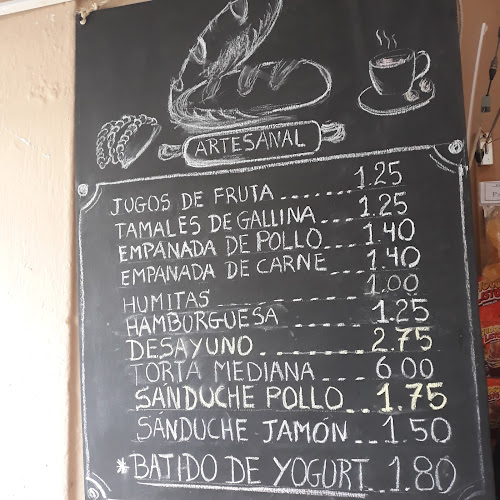 ARTESANAL
JUGOS DE FRUTA....... 1.25
TAMALES DE GALLINA.... 1.25
EMPANADA DE POLLO... 1.40
EMPANADA DE CARNE... 1.40
HUMITAS 1.00
HAMBURGUESA 1.25
DESAYUNO........ 2.75
TORTA MEDIANA.... 6.00
SÁNDUCHE POLLO... 1.75
SÁNDUCHE JAMÓN... 1.50
*BATIDO DE YOGURT 1.80